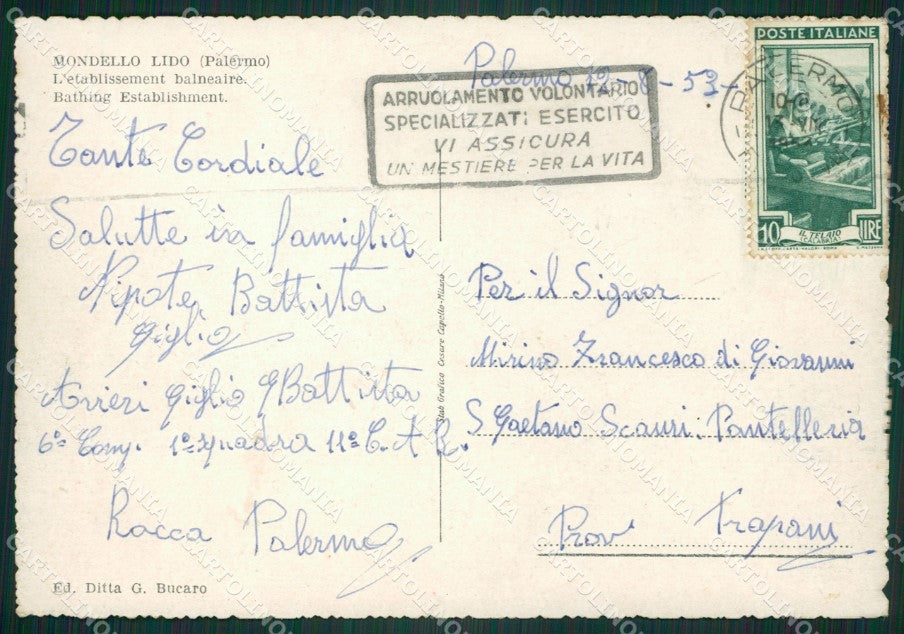 MONDELLO LIDO (Palermo)
L'etablissement balneaire.
Bathing Establishment.
Palermo 12-8-53-
ARRUOLAMENTO VOLONTARIO
SPECIALIZZATI ESERCITO
VI ASSICURA
UN MESTIERE PER LA VITA
POSTE ITALIANE
PALERMO
10
IL TELAIO
(CALABRIA)
LIRE
Tante Cordiale
Salutte in famiglia
Nipote Battista
Giglio
Avieri Giglio GBattista
6ª Comp. 1ª squadra 11º C.A.R.
Rocca Palermo
Ed. Ditta G. Bucaro
Stab Grafico Cesare Capello-Milano
Per il Signor
Mirino Francesco di Giovanni
S Gaetano Scauri. Pantelleria
Prov Trapani
CARTOLINOMANIA